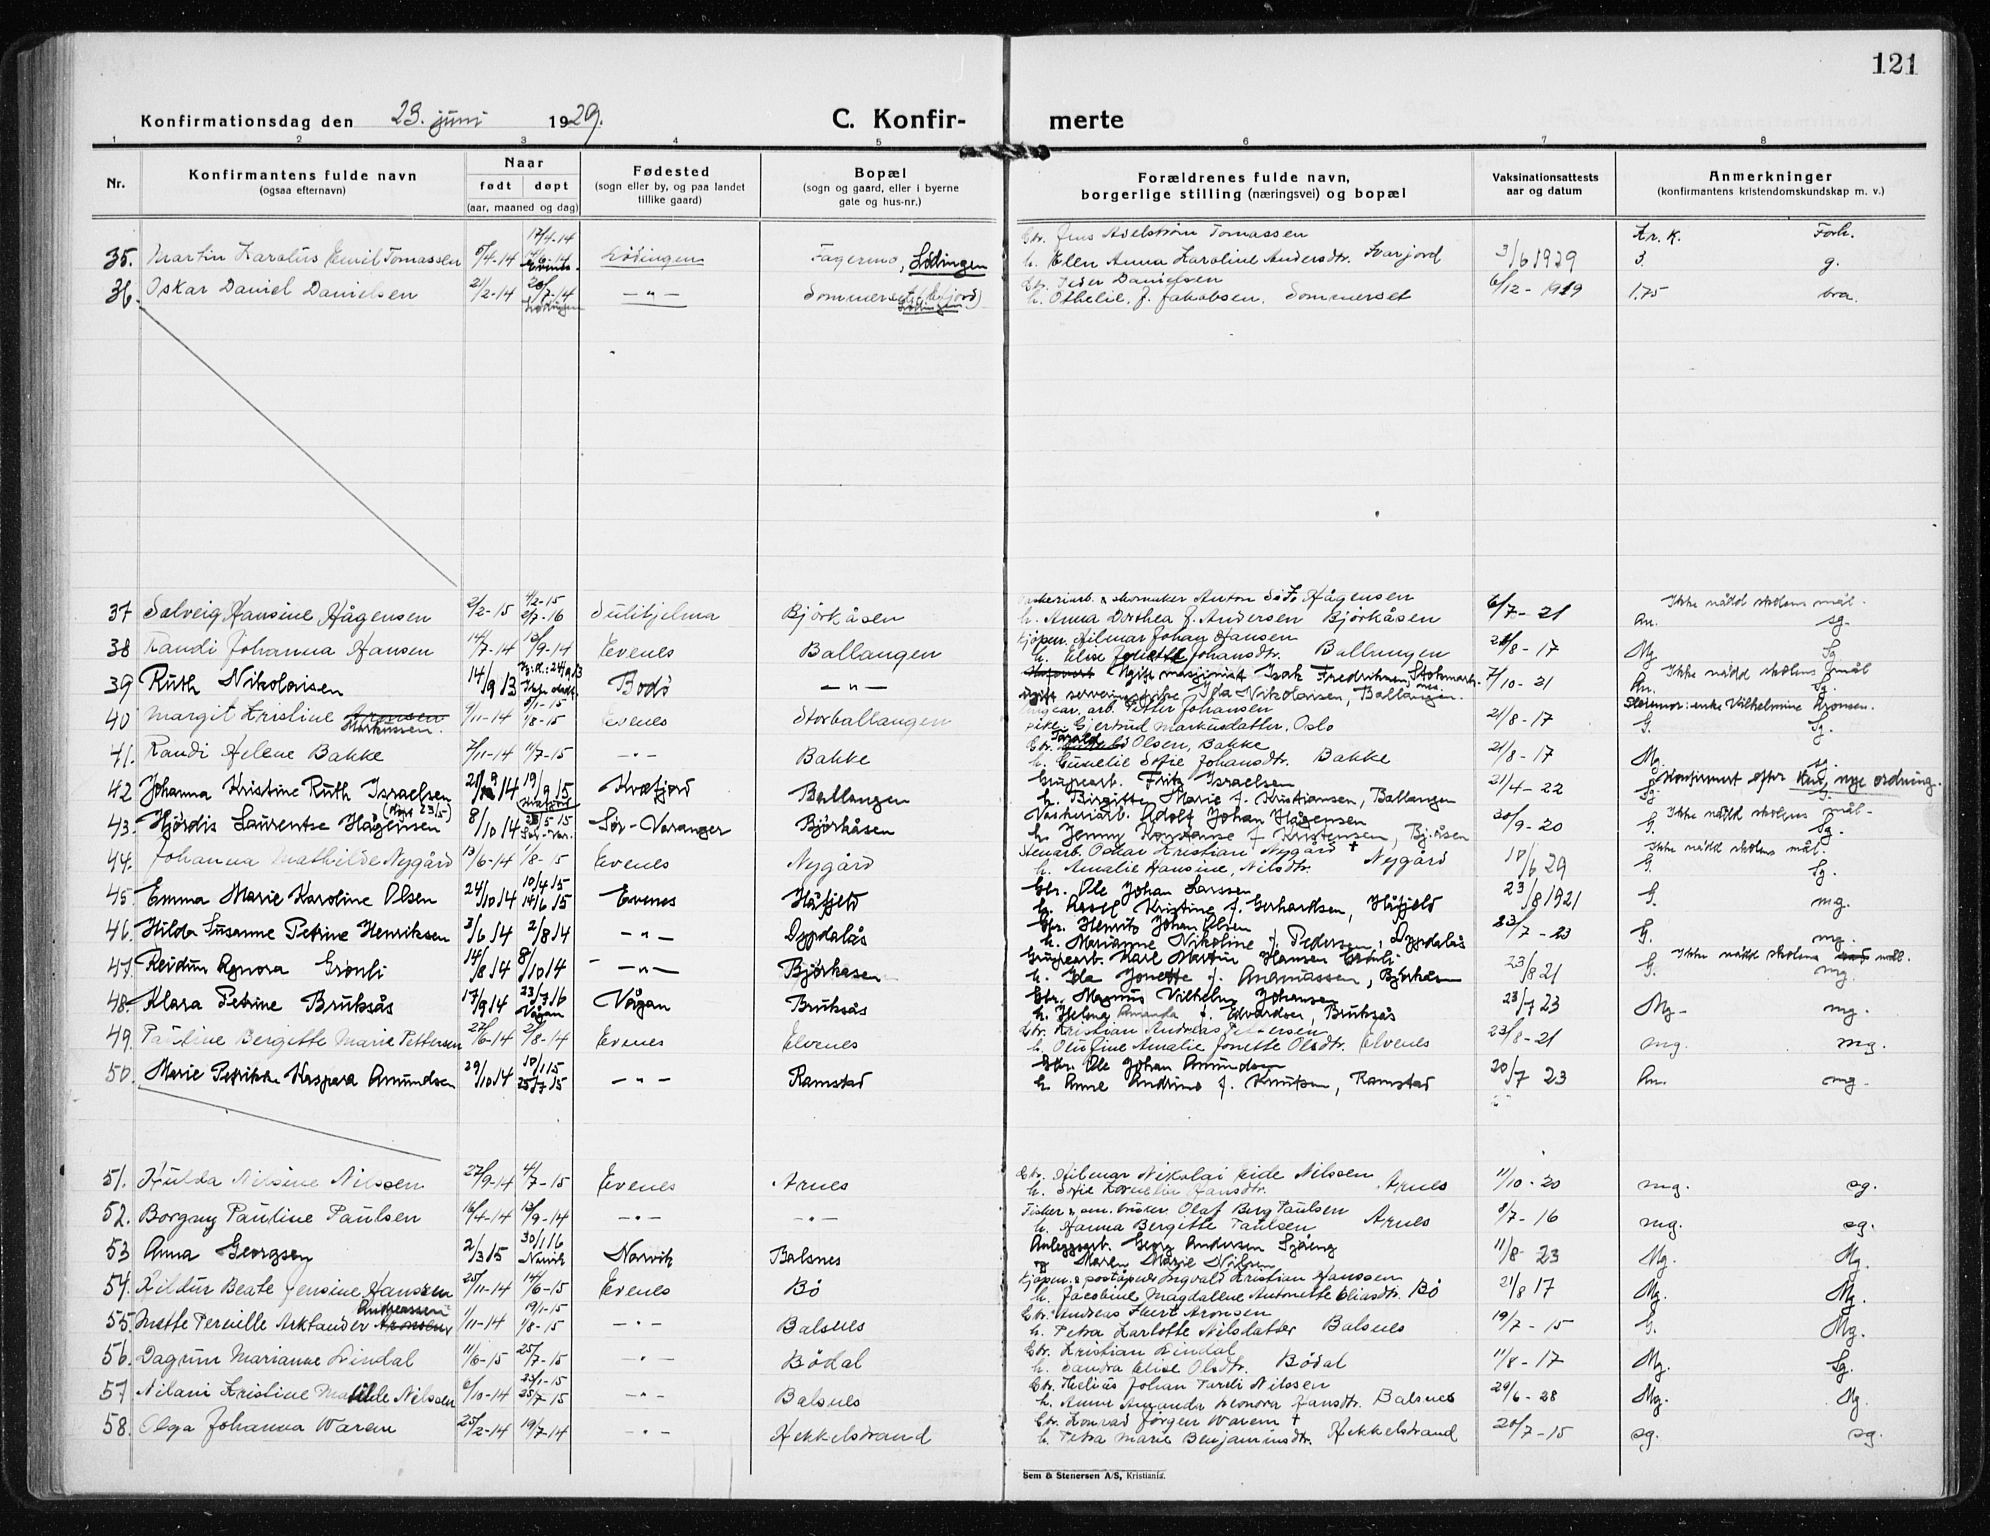 121
Konfirmationsdag den 23. juni 1929.
C. Konfir- merte
1 2 3 4 5 6 7 8
Nr.
Konfirmantens fulde navn
(ogsaa efternavn)
Naar
født døpt
(aar, maaned og dag)
Fødested
(sogn eller by, og paa landet
tillike gaard)
Bopæl
(sogn og gaard, eller i byerne
gate og hus-nr.)
Forældrenes fulde navn,
borgerlige stilling (næringsvei) og bopæl
Vaksinationsattests
aar og datum
Anmerkninger
(konfirmantens kristendomskundskap m. v.)
Kr. k. Forh.
35. Martin Karolus Emil Tomassen 5/4-14 17/4-14 Evenes Lødingen Fagermo, Lødingen Gbr. Jens Adelstrøm Tomassen
h. Elen Anna Karoline Andersdtr. Svarjord 3/6 1929 3. g.
36. Oskar Daniel Danielsen 21/2-14 26/7-14 Lødingen -"- Sommerset Lødingen Gbr. Peder Danielsen
h. Othelie, f. Jakobsen, Sommerset 6/12-1919 1.75 bra.
37 Solveig Hansine Hågensen 2/2-15 4/2-15 2/7-16 Sulitjelma Bjørkåsen skomaker Anton Hågensen
h. Anna Dorthea f. Andersen Bjørkåsen 6/7-21 Ikke nådd skolens mål. sg.
38 Randi Johanna Hansen 14/7-14 13/9-14 Evenes Ballangen Kjøpm. Hilmar Johan Hansen
h. Elise Johansdtr. Ballangen 28/8-17 Mg. Sg.
39 Ruth Nikolaisen 14/9 13 Bodø -"- Ugift maskinist Isak Fredriksen, Stokmark-
ugift serveringspike Ida Nikolaisen, Ballangen. 7/10-21 Ikke nådd skolens mål Sg.
40 Margit Kristine Aronsen Markussen. 9/11-14 1/8-15 Evenes Storballangen arb. Petter Johansen
pike Gjertrud Markusdatter, Oslo 21/8-17 Stermor: enke Vilhelmine Aronsen. G. Sg.
41. Randi Helene Bakke 7/11-14 11/7-15 -"- Bakke Gbr. Olsen, Bakke
h. Gunelie Sofie Johansdtr. Bakke 21/8-17 Mg. sg.
42 Johanna Kristine Ruth Israelsen 19/9 15 Kvæfjord Kvæfjord Ballangen Grubearb. Fritz Israelsen
h. Birgitte Marie f. Kristiansen, Ballangen 21/4-22 Konfirmert efter nye ordning.
43. Hjørdis Laurentse Hågensen (døpt 23/5) 8/10 14 Sør-Var. Sør-Varanger Bjørkåsen Vaskeriarb. Adolf Johan Hågensen
h. Jenny Konstanse f. Kristensen, Bj.åsen 30/9-20 Ikke nådd skolens mål. G. Sg.
44. Johanna Mathilde Nygård 13/6-14 1/8-15 Evenes Nygård Stenarb. Oskar Kristian Nygård †
h. Amalie Hansine Nilsdtr. Nygård 10/6 29 Ikke nådd skolens mål. G. Sg.
45. Emma Marie Karoline Olsen 24/10 14 10/4 15 14/6 15 Evenes Håfjeld Gbr. Ole Johan Larssen
h. Kristine f. Gerhardsen, Håfjeld 23/8 1921 G. mg.
46. Hilda Susanne Petrine Henriksen 3/6 14 2/8 14 -"- Dypdalås Gbr. Henrik Johan Olsen
h. Marianne Nikoline f. Pedersen, Dypdalås 23/7-23 G. mg.
47. Reidun Agnora Grønli 14/8 14 8/10 14 -"- Bjørkåsen Grubearb. Karl Martin Hansen Grønli
h. Ida Jonette f. Andreassen, Bjørkåsen 23/8 21 Ikke nådd skolens mål. G. mg.
48. Klara Petrine Bruksås 17/9 14 23/7 16 Vågan Vågan Bruksås Gbr. Magnus Vilhelm Johansen
h. Helena Amanda f. Edvardsen, Bruksås 23/7 23 Mg- mg.
49. Pauline Bergitte Marie Pettersen 27/6-14 2/8-14 Evenes Elvenes Gbr. Kristian Andreas Pettersen
h. Olufine Amalie Jonette Olsdtr. Elvenes 23/8-21 mg. mg.
50. Marie Petrikke Kaspara Amundsen 29/10 14 10/1 15 25/7 15 -"- Ramstad Gbr. Ole Johan Amundsen
h. Anne Andrine f. Knutsen, Ramstad 20/7 23 An. mg-
51. Hulda Nilsine Nilssen 27/9-14 4/7-15 Evenes Arnes Gbr. Hilmar Nikolai Eide Nilssen
h. Sofie Kornelia Hansdtr. Arnes 11/10-20 mg. sg.
52. Borgny Pauline Paulsen 16/4-14 13/9-14 -"- -"- Fisker & sm. bruker Olaf Berg Paulsen
h. Hanna Bergitte Paulsen Arnes 8/7-16 mg. sg.
53 Anna Georgsen 2/3 15 30/1 16 Narvik Narvik Balsnes Anleggsarb. Georg Andersen Sjåeng
og Maren Marie Nilsen 11/8 23 Mg. Mg.
54. Hildur Beate Jensine Hanssen 25/11-14 14/6-15 Evenes Bø Kjøpm. & poståpner Ingvald Kristian Hanssen
h. Jacobine Magdalene Antonette Eliasdtr. Bø 21/8 17 Mg. Mg.
55. Mette Pernille Arktander Aronsen Andreassen 1/11-14 19/1-15 1/8-15 -"- Balsnes Gbr. Andreas Hvert Aronsen
h. Petra Karlotte Nilsdatter Balsnes 19/7-15 G. Mg.
56. Dagrun Marianne Lindal 11/6-15 25/7-15 -"- Bødal Gbr. Kristian Lindal
h. Sandra Elise Olsdtr. Bødal 11/8-17 Mg. Sg.
57. Nilani Kristine Matilde Nilssen 6/10-14 23/1-15 25/7-15 -"- Balsnes Gbr. Helias Johan Pareli Nilssen
h. Anne Amanda Leonora Hansdtr. Balsnes 29/6-28 Mg. Mg.
58. Olga Johanna Waren 25/2-14 19/7-14 -"- Hekkelstrand Gbr. Konrad Jørgen Waren †
h. Petra Marie Benjaminsdtr. Hekkelstrand 20/7-15 sg. sg.
Sem & Stenersen A/S, Kristiania.